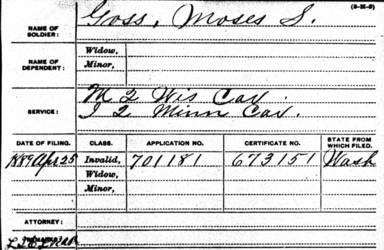 (3-35-8)
NAME OF SOLDIER: Goss, Moses S.
NAME OF DEPENDENT: Widow,
Minor,
SERVICE: M 2 Wis Cav.
I 2 Minn Cav.
DATE OF FILING. CLASS. APPLICATION NO. CERTIFICATE NO. STATE FROM WHICH FILED.
1889 Apr 25 Invalid, 701181 673151 Wash
Widow,
Minor,
ATTORNEY: